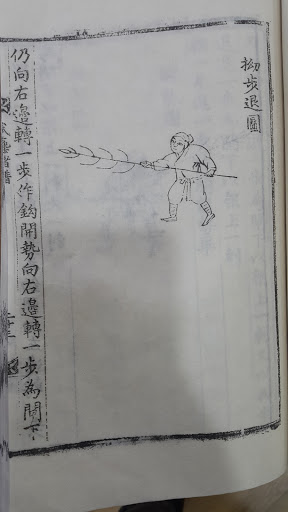 拗步退圖
仍向右邉轉一步作鈎開勢向右邉轉一步為閃下